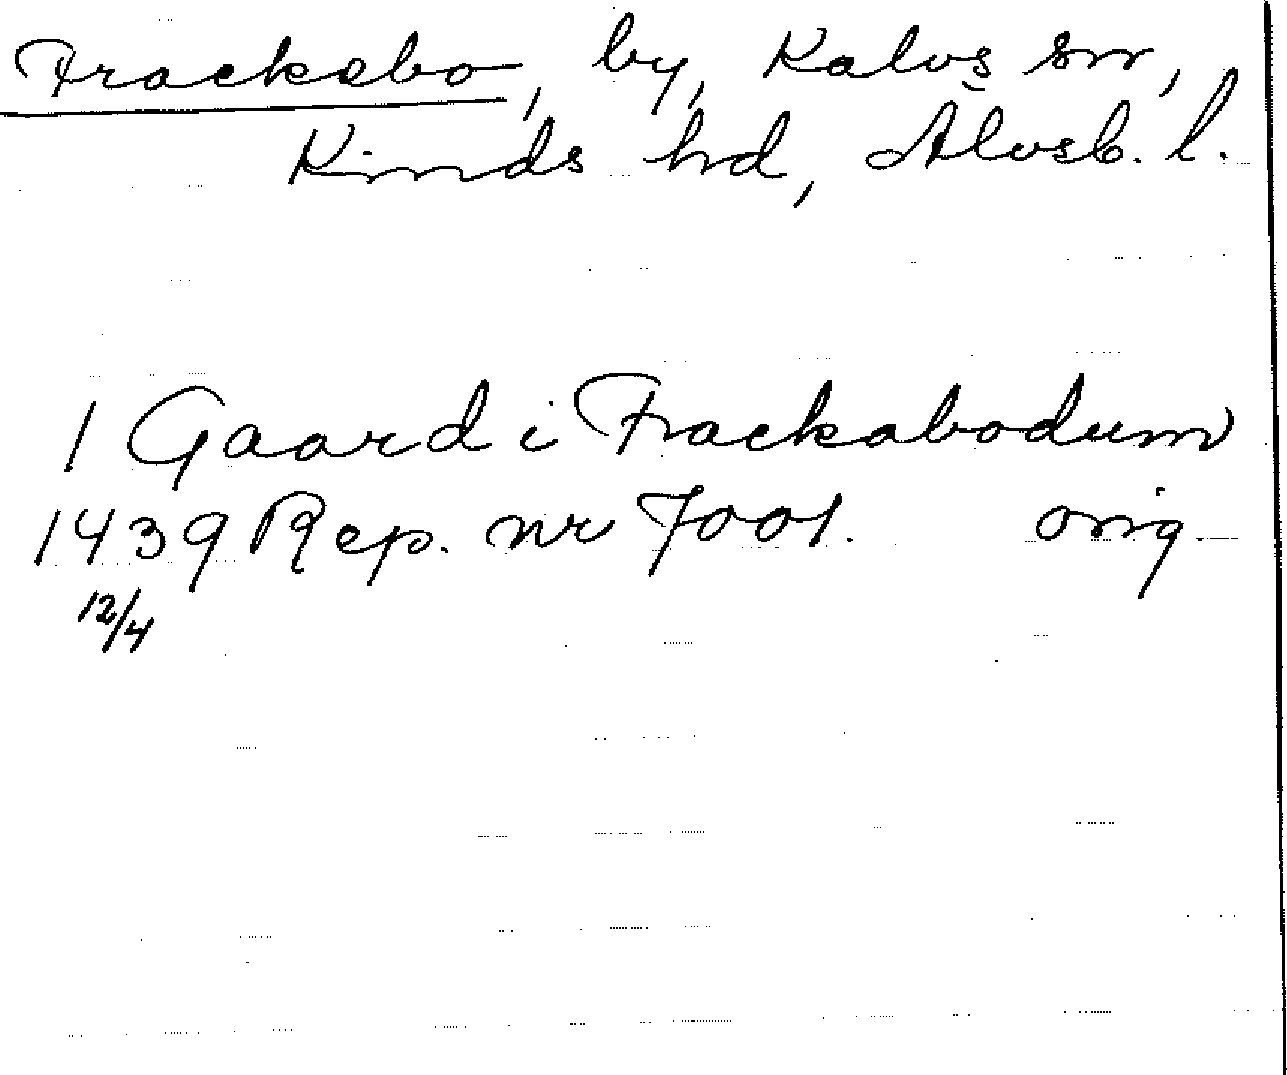 Frackebo, by, Kalvs sn,
Kinds hd, Älvsb. l.
1 Gaard i Frackabodum
1439 Rep. nr 7001. orig.
12/4